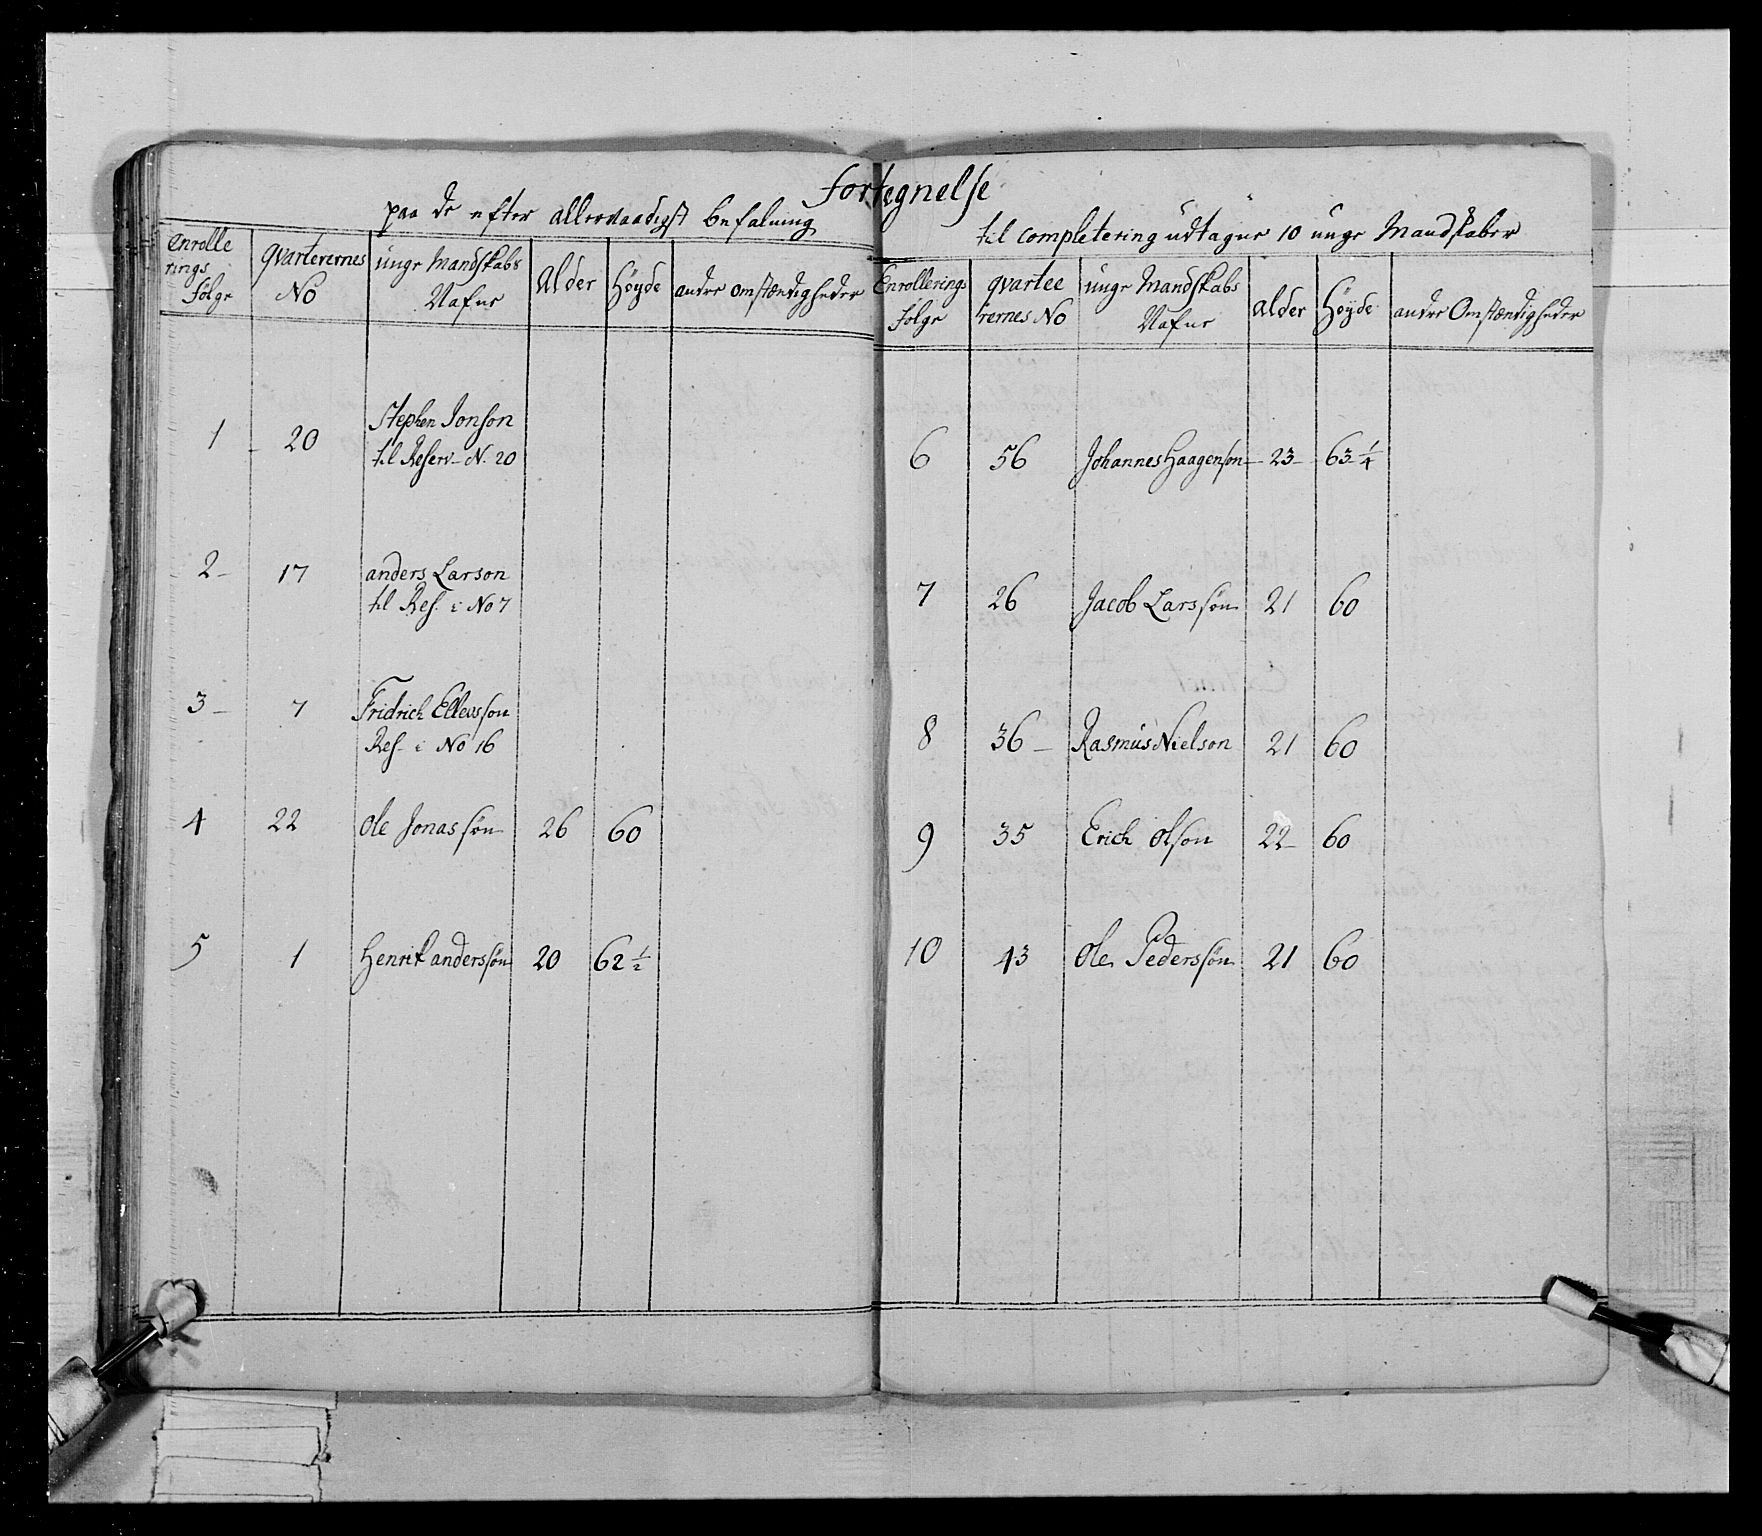 Fortegnelse
paa de efter allernaadigst befalning
til completering udtagne 10 unge Mandskaber
Enrolle
rings
følge
qvarterernes
No
unge Mandskabs
Nafne
Alder
Høyde
andre omstændigheder
1 20 Stephen Jonson
til Reserv- N. 20
2 17 anders Larson
til Res. i No 7
3 7 Fridrich Ellevsson
Res- i No 16
4 22 Ole Jonassøn 26 60
5 1 Henrik anderssøn 20 62 1/2
Enrollerings
følge
qvartee
rernes No
unge Mandskabs
Nafne
Alder
Høyde
andre Omstændigheder
6 56 Johannes Haagenson 23 63 1/4
7 26 Jacob Larssøn 21 60
8 36 Rasmus Nielson 21 60
9 35 Erich Olson 22 60
10 43 Ole Pederssøn 21 60